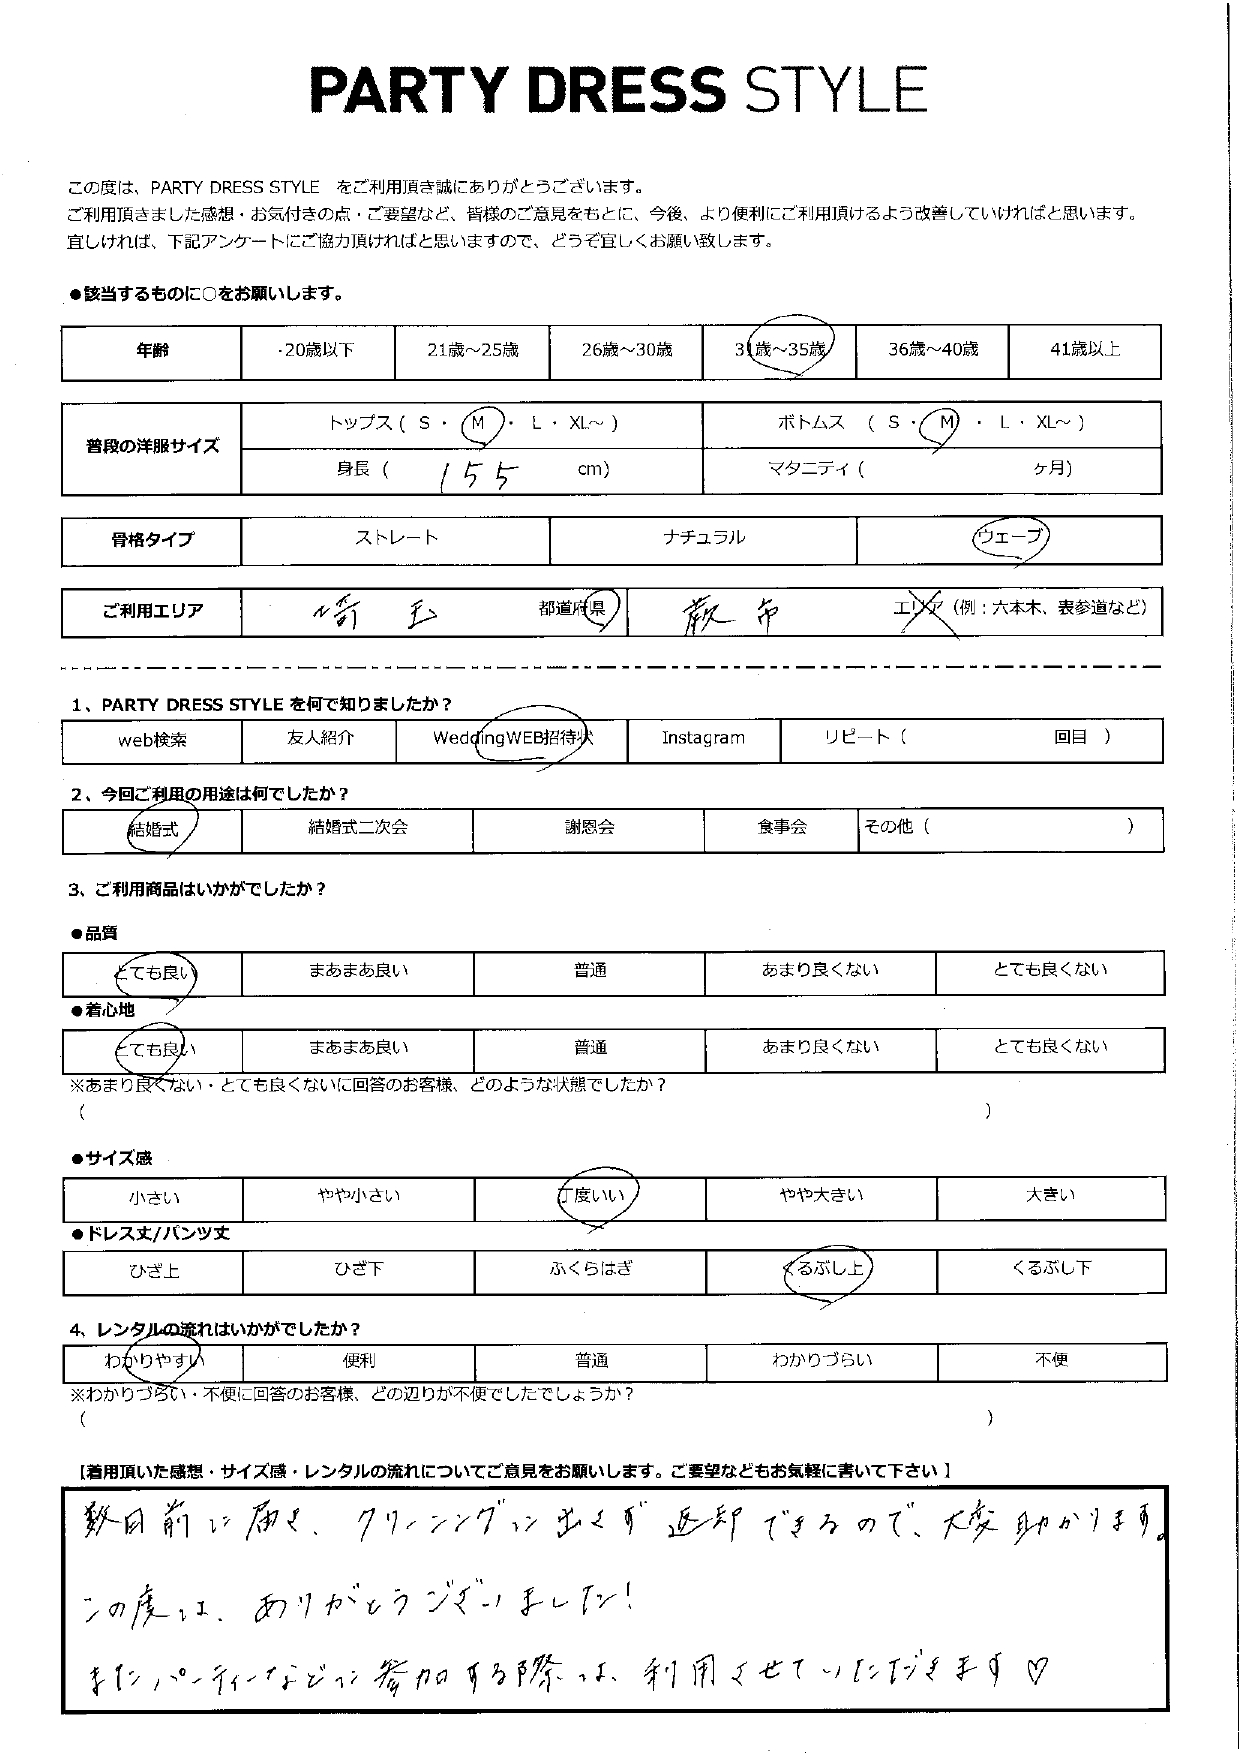 PARTY DRESS STYLE
この度は、PARTY DRESS STYLE をご利用頂き誠にありがとうございます。
ご利用頂きました感想・お気付きの点・ご要望など、皆様のご意見をもとに、今後、より便利にご利用頂けるよう改善していければと思います。
宜しければ、下記アンケートにご協力頂ければと思いますので、どうぞ宜しくお願い致します。
●該当するものに○をお願いします。
年齢 ・20歳以下 21歳～25歳 26歳～30歳 31歳～35歳 36歳～40歳 41歳以上
普段の洋服サイズ
トップス ( S ・ M ・ L ・ XL～ ) ボトムス ( S ・ M ・ L ・ XL～ )
身長 ( 155 cm) マタニティ ( ヶ月)
骨格タイプ ストレート ナチュラル ウェーブ
ご利用エリア 埼玉 都道府県 蕨市 エリア (例：六本木、表参道など)
1、PARTY DRESS STYLE を何で知りましたか？
web検索 友人紹介 WeddingWEB招待状 Instagram リピート ( 回目 )
2、今回ご利用の用途は何でしたか？
結婚式 結婚式二次会 謝恩会 食事会 その他 ( )
3、ご利用商品はいかがでしたか？
●品質
とても良い まあまあ良い 普通 あまり良くない とても良くない
●着心地
とても良い まあまあ良い 普通 あまり良くない とても良くない
※あまり良くない・とても良くないに回答のお客様、どのような状態でしたか？
( )
●サイズ感
小さい やや小さい 丁度いい やや大きい 大きい
●ドレス丈/パンツ丈
ひざ上 ひざ下 ふくらはぎ くるぶし上 くるぶし下
4、レンタルの流れはいかがでしたか？
わかりやすい 便利 普通 わかりづらい 不便
※わかりづらい・不便に回答のお客様、どの辺りが不便でしたでしょうか？
( )
【着用頂いた感想・サイズ感・レンタルの流れについてご意見をお願いします。ご要望などもお気軽に書いて下さい】
数日前に届き、クリーニングに出さず返却できるので、大変助かります。
この度は、ありがとうございました!
またパーティーなどに参加する際は、利用させていただきます♡